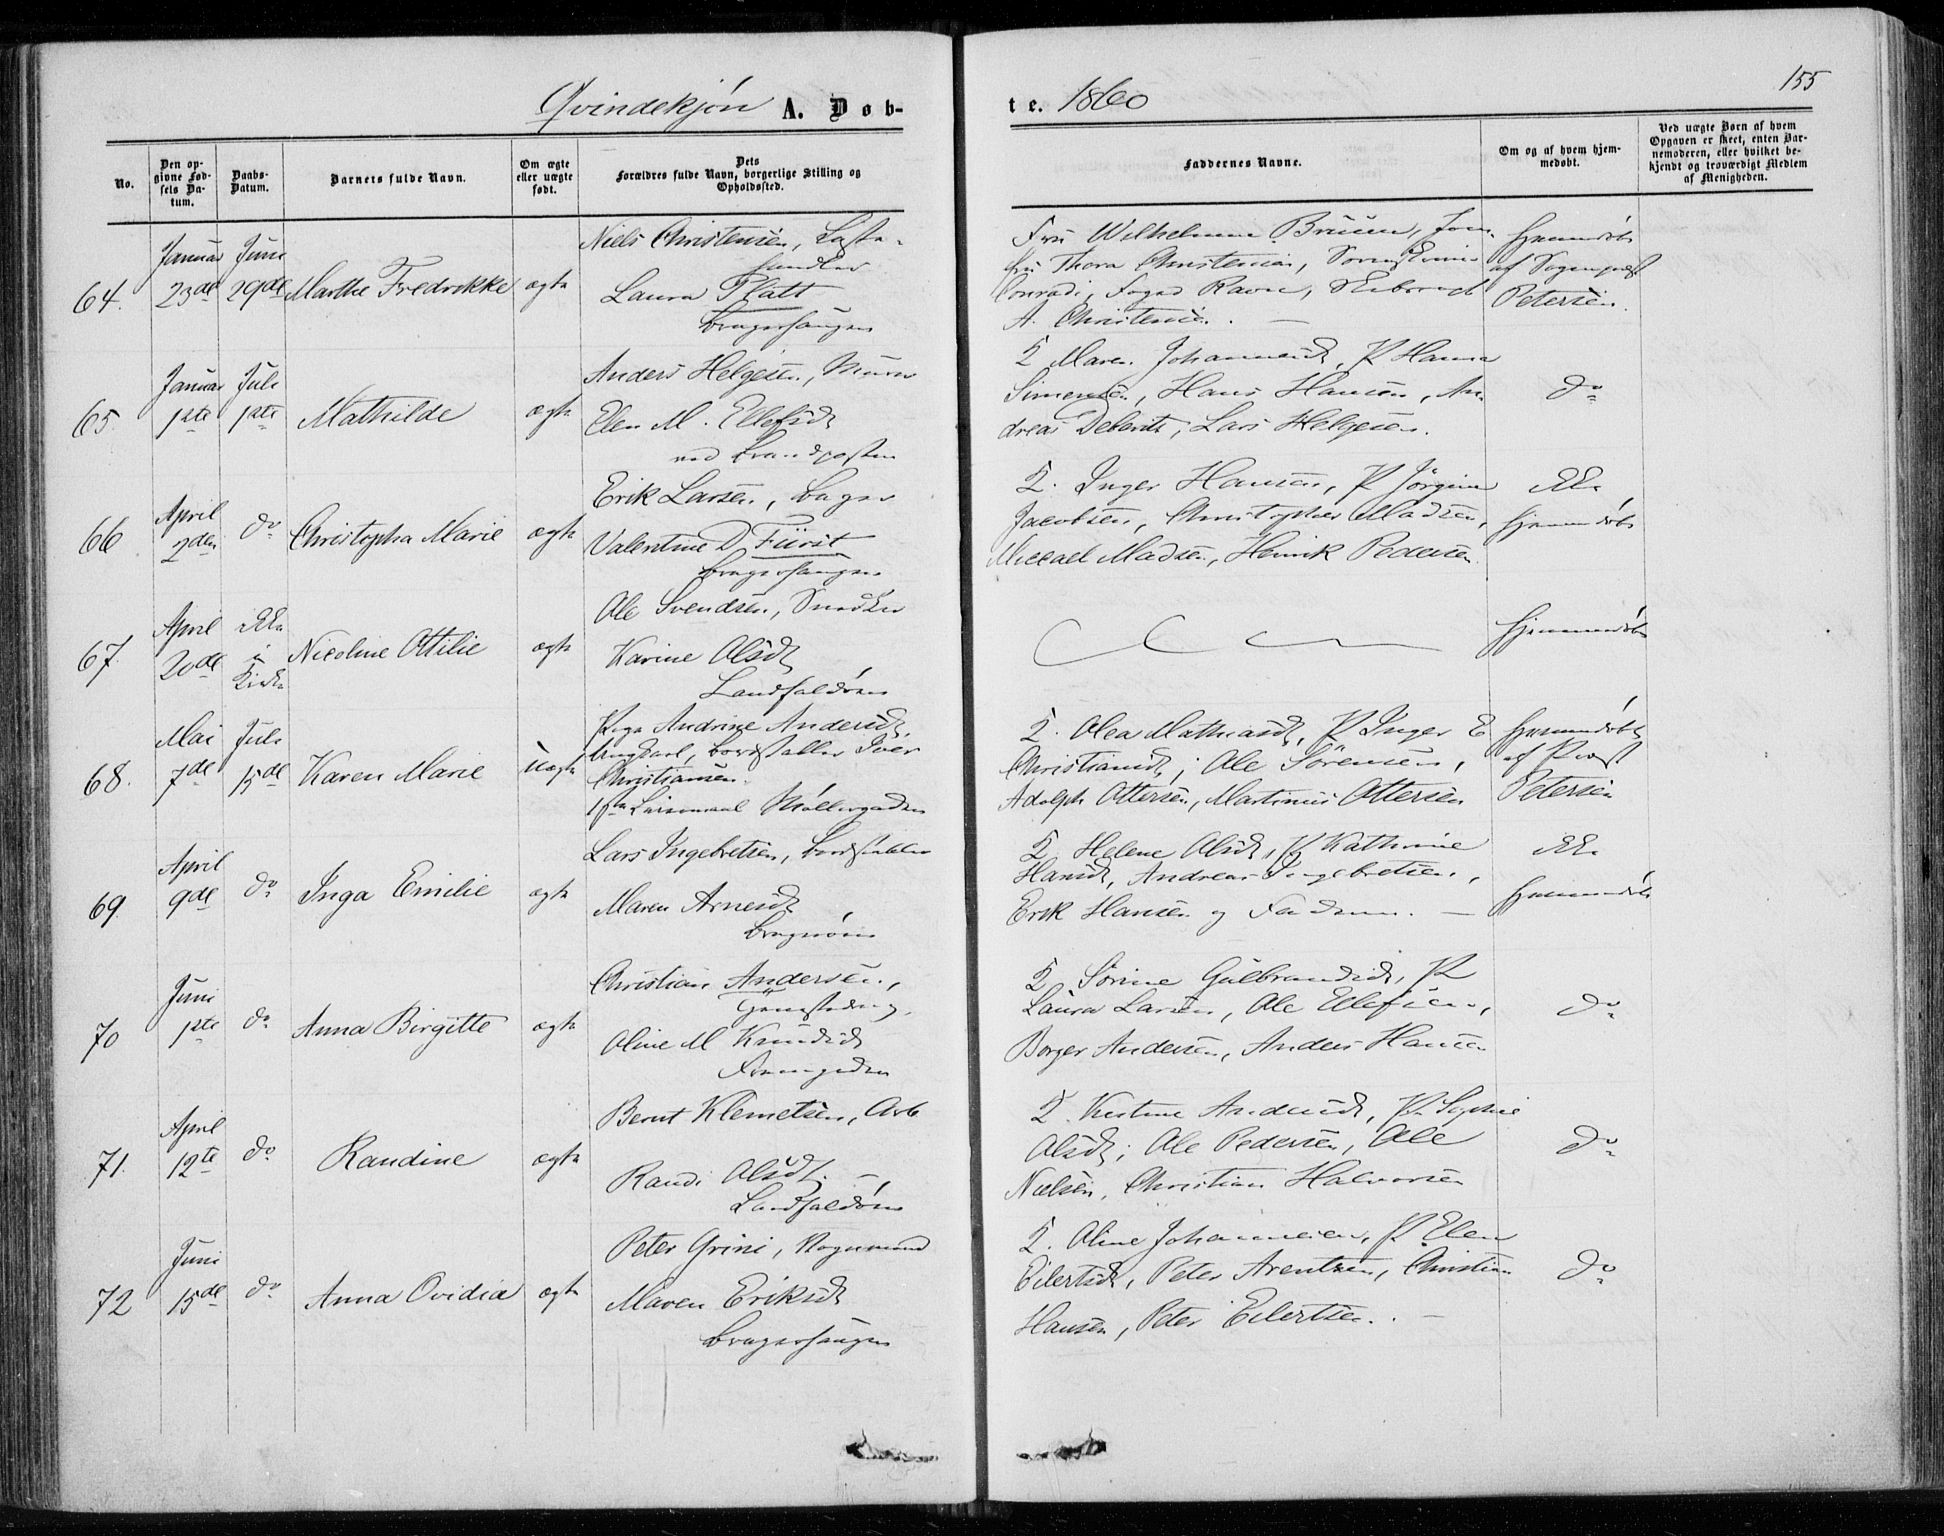 155
Qvindekjøn A. Døb-
te. 1860
No.
Den op-
givne Fød-
sels Da-
tum.
Daabs-
Datum.
Barnets fulde Navn.
Om ægte
eller uægte
født.
Dets
Forældres fulde Navn, borgerlige Stilling og
Opholdssted.
Faddernes Navne.
Om og af hvem hjem-
medøbt.
Ved uægte Børn af hvem
Opgaven er skeet, enten Bar-
nemoderen, eller hvilket be-
kjendt og troværdigt Medlem
af Menigheden.
64.
Januar
23de
Juni
29de
Marthe Fredrikke
ægte
Niels Christensen,
Laura Platt
Fru Wilhelmine Bruun, Jom-
fru Thora Christensen,
Conradi, Foged Ravn,
A. Christensen.
hjemmedøbt
af Sogneprest
Petersen.
65.
Januar
1ste
Juli
1ste
Mathilde
ægte
Anders Helgesen, Murer
Elen M. Ellefsdt
ved Brandposten
Maren Johannesdt, P Hanna
Simensen, Hans Hansen, An-
dreas, Lars Helgesen.
do
66
April
2den
do
Christopha Marie
ægte
Erik Larsen, Bager
Valentine D Fürst
Inger Hansen, P Jörgine
Jacobsen, Christopher Madsen,
Miccael Madsen, Henrik Pedersen
ikke
hjemmedøbt
67.
April
20de
ikke
i
Kirke
Nicoline Ottilie
ægte
Ole Svendsen, Snedker
Karine Olsdt
Landfaldöen
hjemmedøbt
68.
Mai
7de
Juli
15de
Karen Marie
Uægte
Pige Andrine Andersdt,
Ungkarl, Bordstabler Iver
Christiansen.
1ste Leiermaal Möllergaden
Olea Mathiasdt, P Inger E
Christiansdt; Ole Sörensen,
Adolph Ottersen, Martinus Ottersen
hjemmedøbt
af Provst
Petersen
69
April
9de
do
Inga Emilie
ægte
Lars Ingebretsen, Bordstabler
Maren Arnesdt
Bragerøen
Helene Olsdt, P Kathrine
Hansdt, Andreas Ingebretsen,
Erik Hansen og Faderen.
ikke
hjemmedøbt
70
Juni
1ste
do
Anna Birgitte
ægte
Christian Andersen,
Oline M Knudsdt
Sörine Gulbrandsdt, P
Laura Larsen, Ole Ellefsen,
Borger Andersen, Anders Hansen
do
71.
April
12te
do
Randine
ægte
Bernt Klemetsen, Arb
Randi Olsdt.
Landfaldöen
Kirstine Andersdt, P. Sophie
Olsdt; Ole Pedersen, Ole
Nielsen, Christian Halvorsen
do
72
Juni
15de
do
Anna Ovidia
ægte
Peter Grini, Vognmand
Maren Eriksdt
Oline Johannesen, P Elen
Eilertsdt, Peter Arentzen, Christian
Hansen, Peter Eilertsen.
do